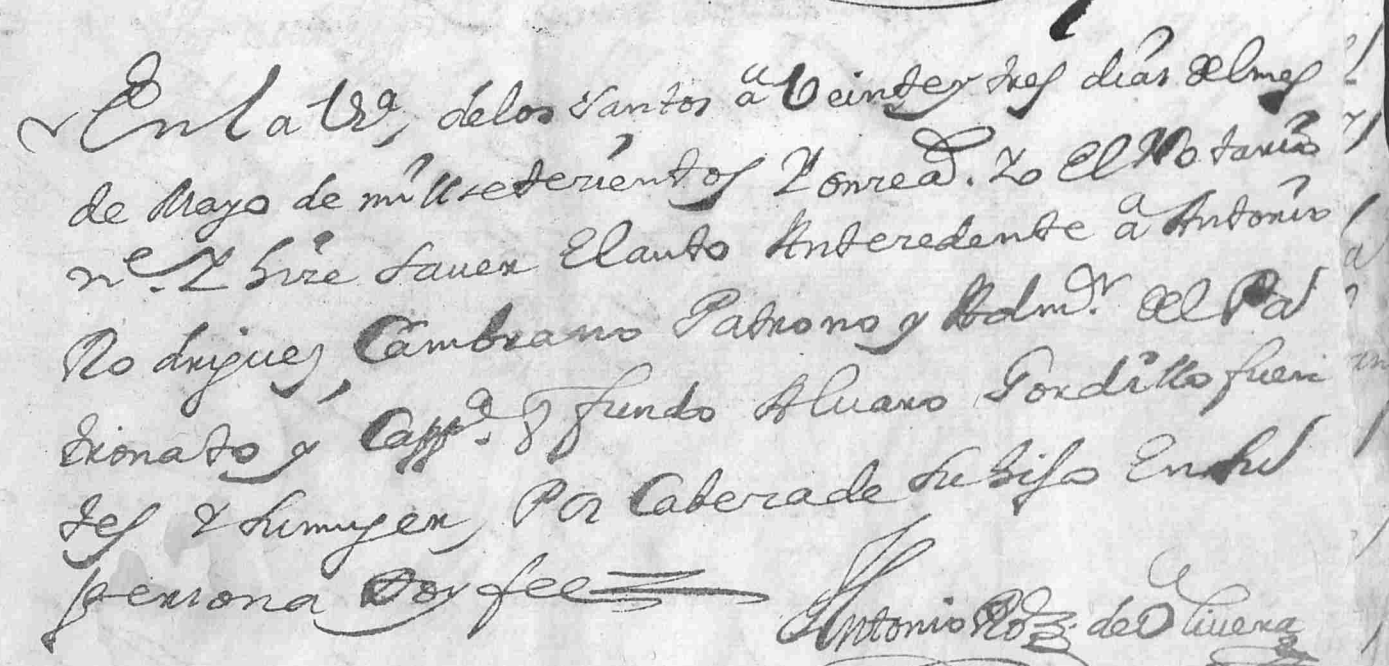 En la Vª de los santos a Veinte y tres dias del mes
de Mayo de mill setecientos Y onze aº. Yo El Notario
ne. Y hize sauer El auto Antecedente a Antonio
Rodriguez Cambrano Patrono y Admor. del Pa
tronato y Cappª. q fundo Aluaro Gordillo fuen
tes Y su muger, Por Cabeza de su hijo En su
persona Doy fee
Antonio Roz de Oliuera